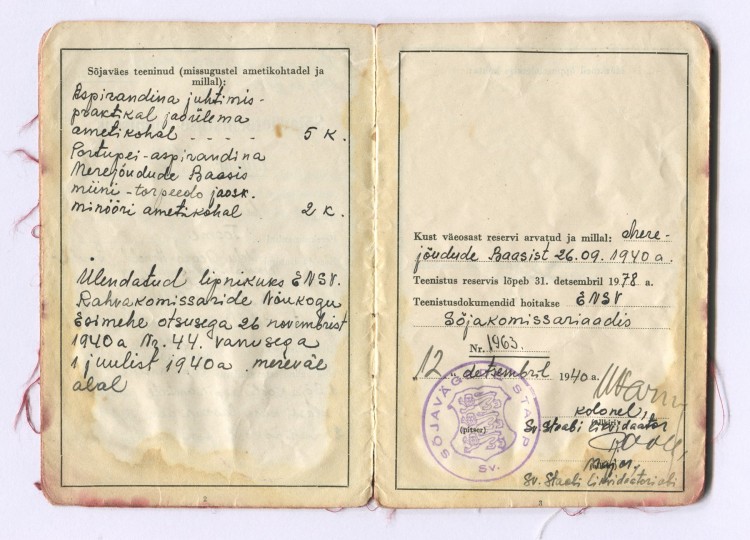 Sõjaväes teeninud (missugustel ametikohtadel ja
millal):
Aspirandina juhtimis-
praktikal jaoülema
ametikohal - - - - - 5 K.
Portupei-aspirandina
Merejõudude Baasis
miini-torpeedo jaosk.
minööri ametikohal 2 K.
Ülendatud lipnikuks ENSV.
Rahvakomissaride Nõukogu
Esimehe otsusega 26 novembrist
1940 a Nr. 44. vanusega
1 juulist 1940 a. mereväe
alal
2
Kust väeosast reservi arvatud ja millal: Mere-
jõudude Baasist 26.09. 1940 a.
Teenistus reservis lõpeb 31. detsembril 1978 a.
Teenistusdokumendid hoitakse ENSV
Sõjakomissariaadis
Nr. 1963.
"12" detsembril 1940 a.
kolonel,
(allkiri)
Sv. Staabi Likvidaator
(pitser)
SÕJAVÄGEDE STAAP
Sv.
major,
Sv. Staabi Likvidaatori abi
3